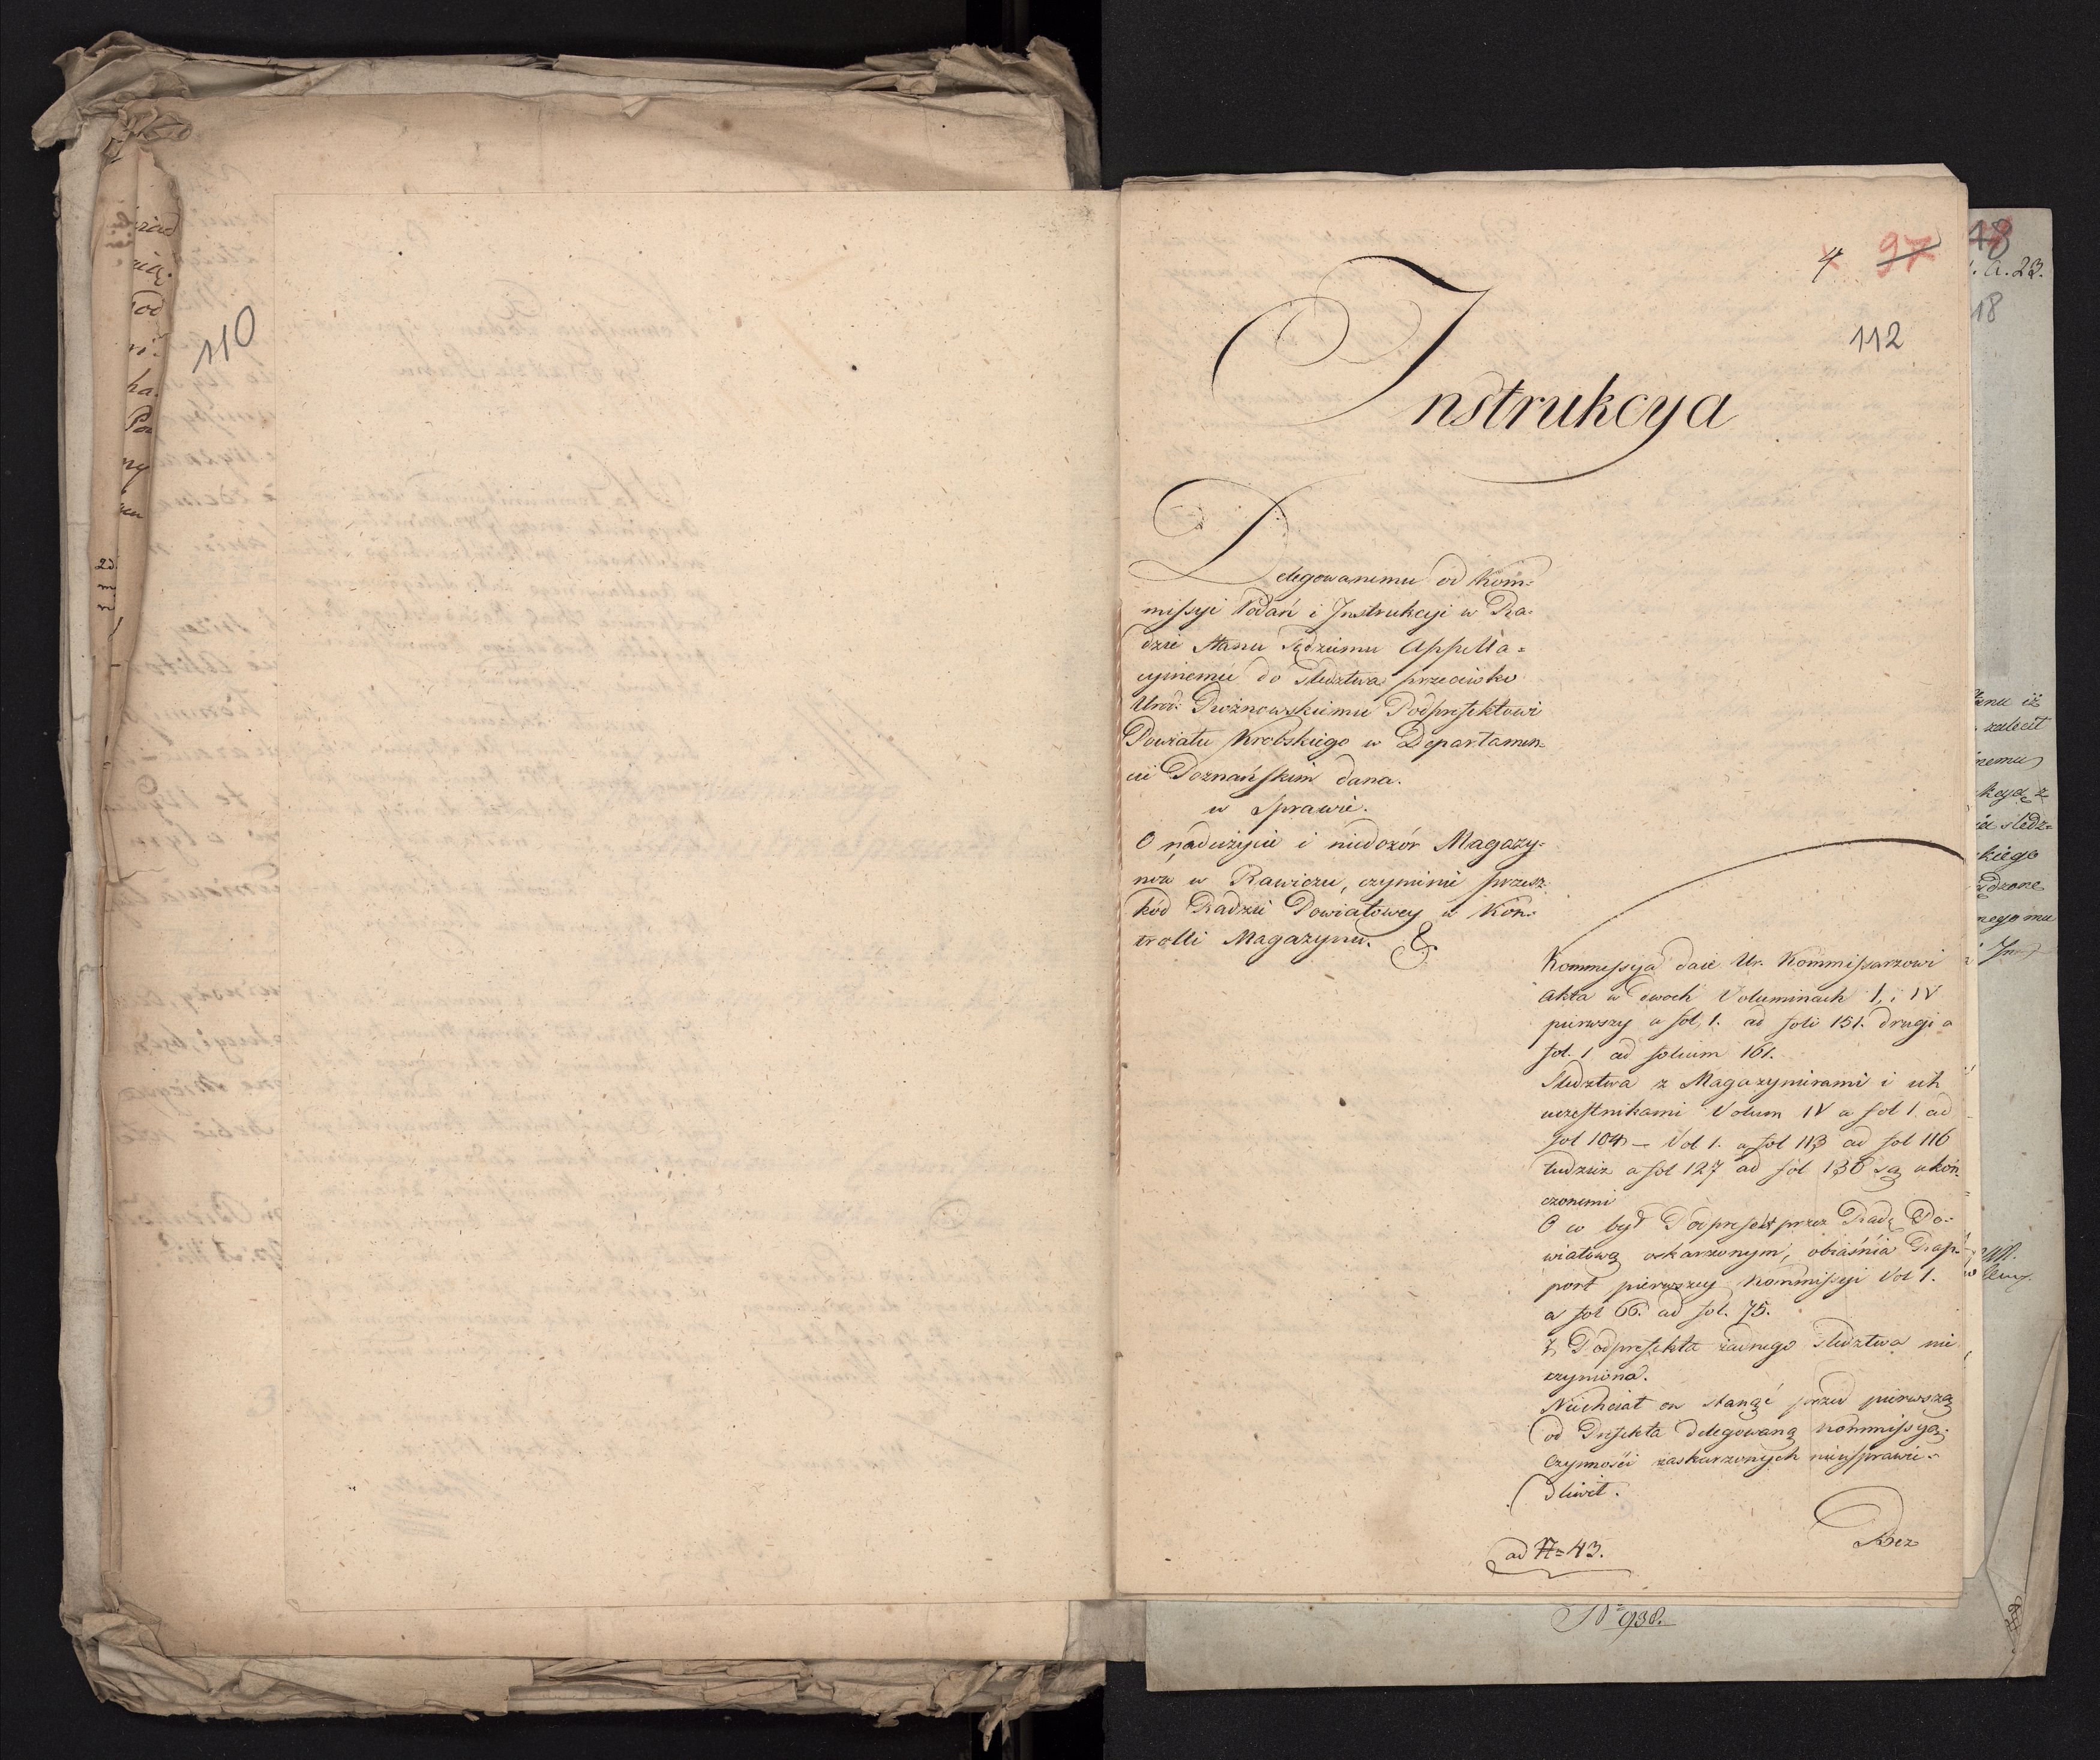 110
4 97
112
Instrukcya
Delegowanemu od Kom-
missyi Podań i Instrukcyi w Ra-
dzie Stanu Sędziemu Appella=
cyinemu do Sledztwa przeciwko
Urod: Prożnowskiemu Podprefektowi
Powiatu Krobskiego w Departamen-
cie Poznańskim dana.
w Sprawie.
O nadużycie i niedozór Magazy-
nów w Rawiczu, czynienie przesz-
kód Radzie Powiatowey w Kon-
trolli Magazynu. &.
Kommissya daie Ur. Kommissarzowi
Akta w dwoch Voluminach I, i IV
pierwszy a fol, 1. ad foli 151. drugi a
fol. 1 ad folium 161.
Sledztwa z Magazynierami i ich
uczestnikami Volum IV a fol 1. ad
fol 104 – Vol 1. a fol 113 ad fol 116
tudzież a fol 127 ad fol 136 są ukoń-
czonemi
O co był Podprefekt przez Radę Po-
wiatową oskarzonym, obiaśnia Rap-
port pierwszey Kommissyi Vol 1.
a fol 66. ad fol. 75.
Z Podprefekta żadnego sledztwa nie
czyniono.
Niechciał on stanąć przed pierwszą
od Prefekta delegowaną Kommissyą.
Czynności zaskarzonych nieusprawie-
dliwił.
Bez
ad N= 43.
N° 938.
18
. a. 23.
18
zalecił
nemu
kiego
nego mu